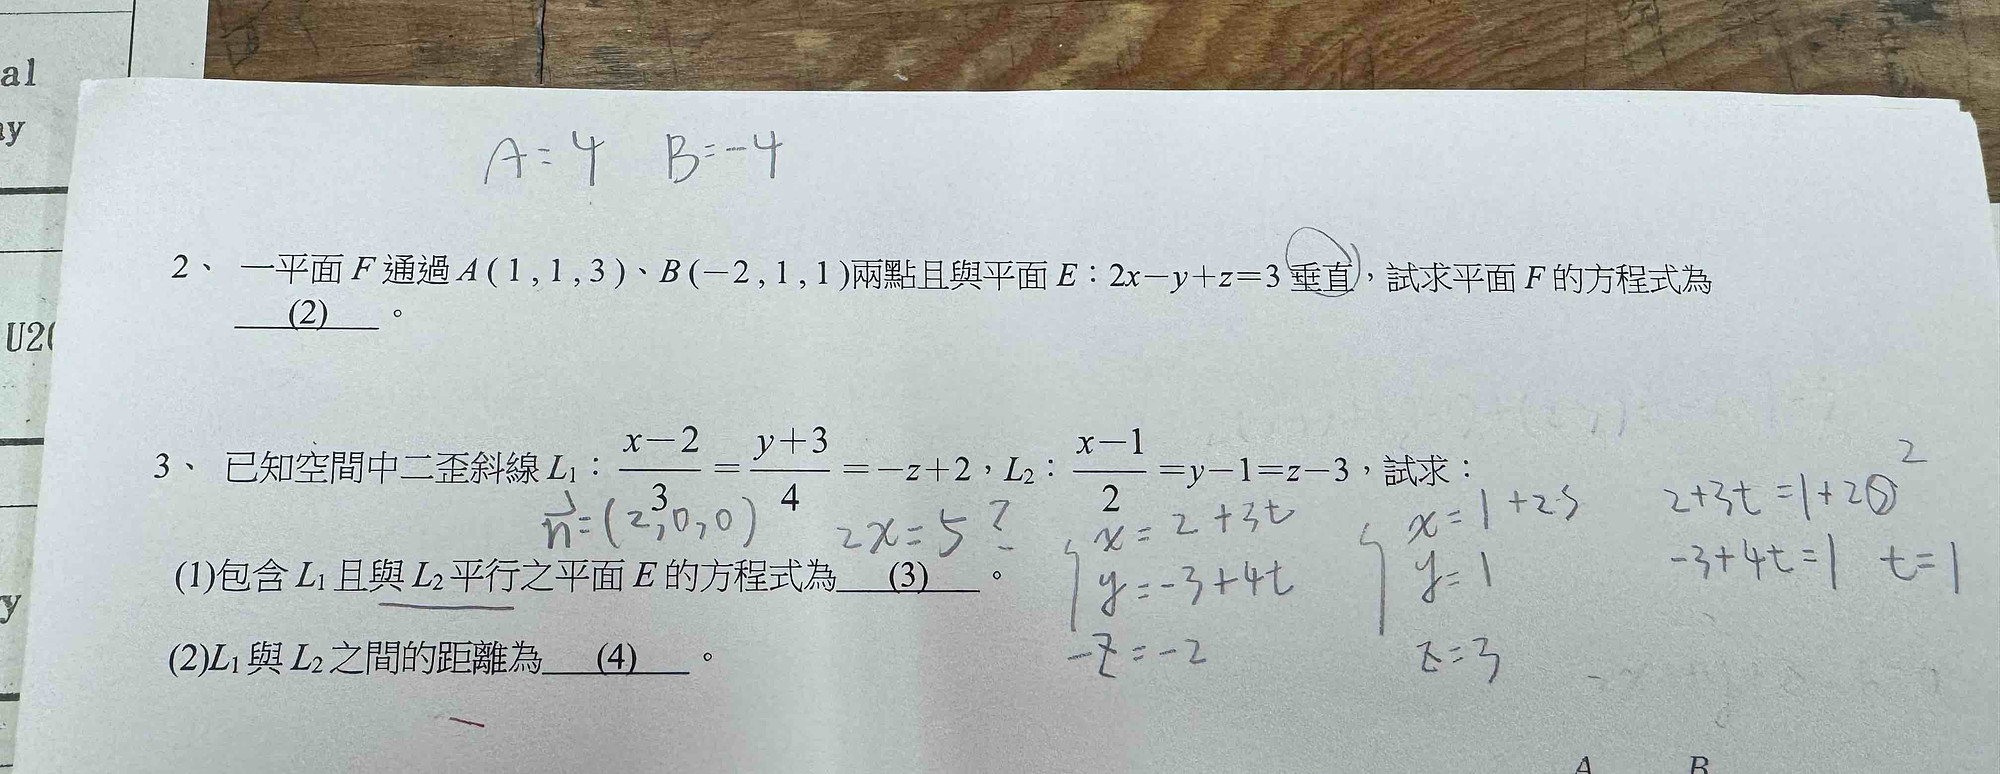 al
ay
U20
y
A=4 B=-4
2、 一平面 F 通過 A ( 1 , 1 , 3 )、B (－2 , 1 , 1 )兩點且與平面 E：2x－y＋z＝3 垂直，試求平面 F 的方程式為
(2) 。
3、 已知空間中二歪斜線 L₁：(x－2)/3＝(y＋3)/4＝－z＋2，L₂：(x－1)/2＝y－1＝z－3，試求：
n⃗=(2,0,0) 2x=5? x=2+3t x=1+2s 2+3t=1+2s 2
(1)包含 L₁ 且與 L₂ 平行之平面 E 的方程式為 (3) 。 y=-3+4t y=1 -3+4t=1 t=1
(2)L₁ 與 L₂ 之間的距離為 (4) 。 -z=-2 z=3
A B